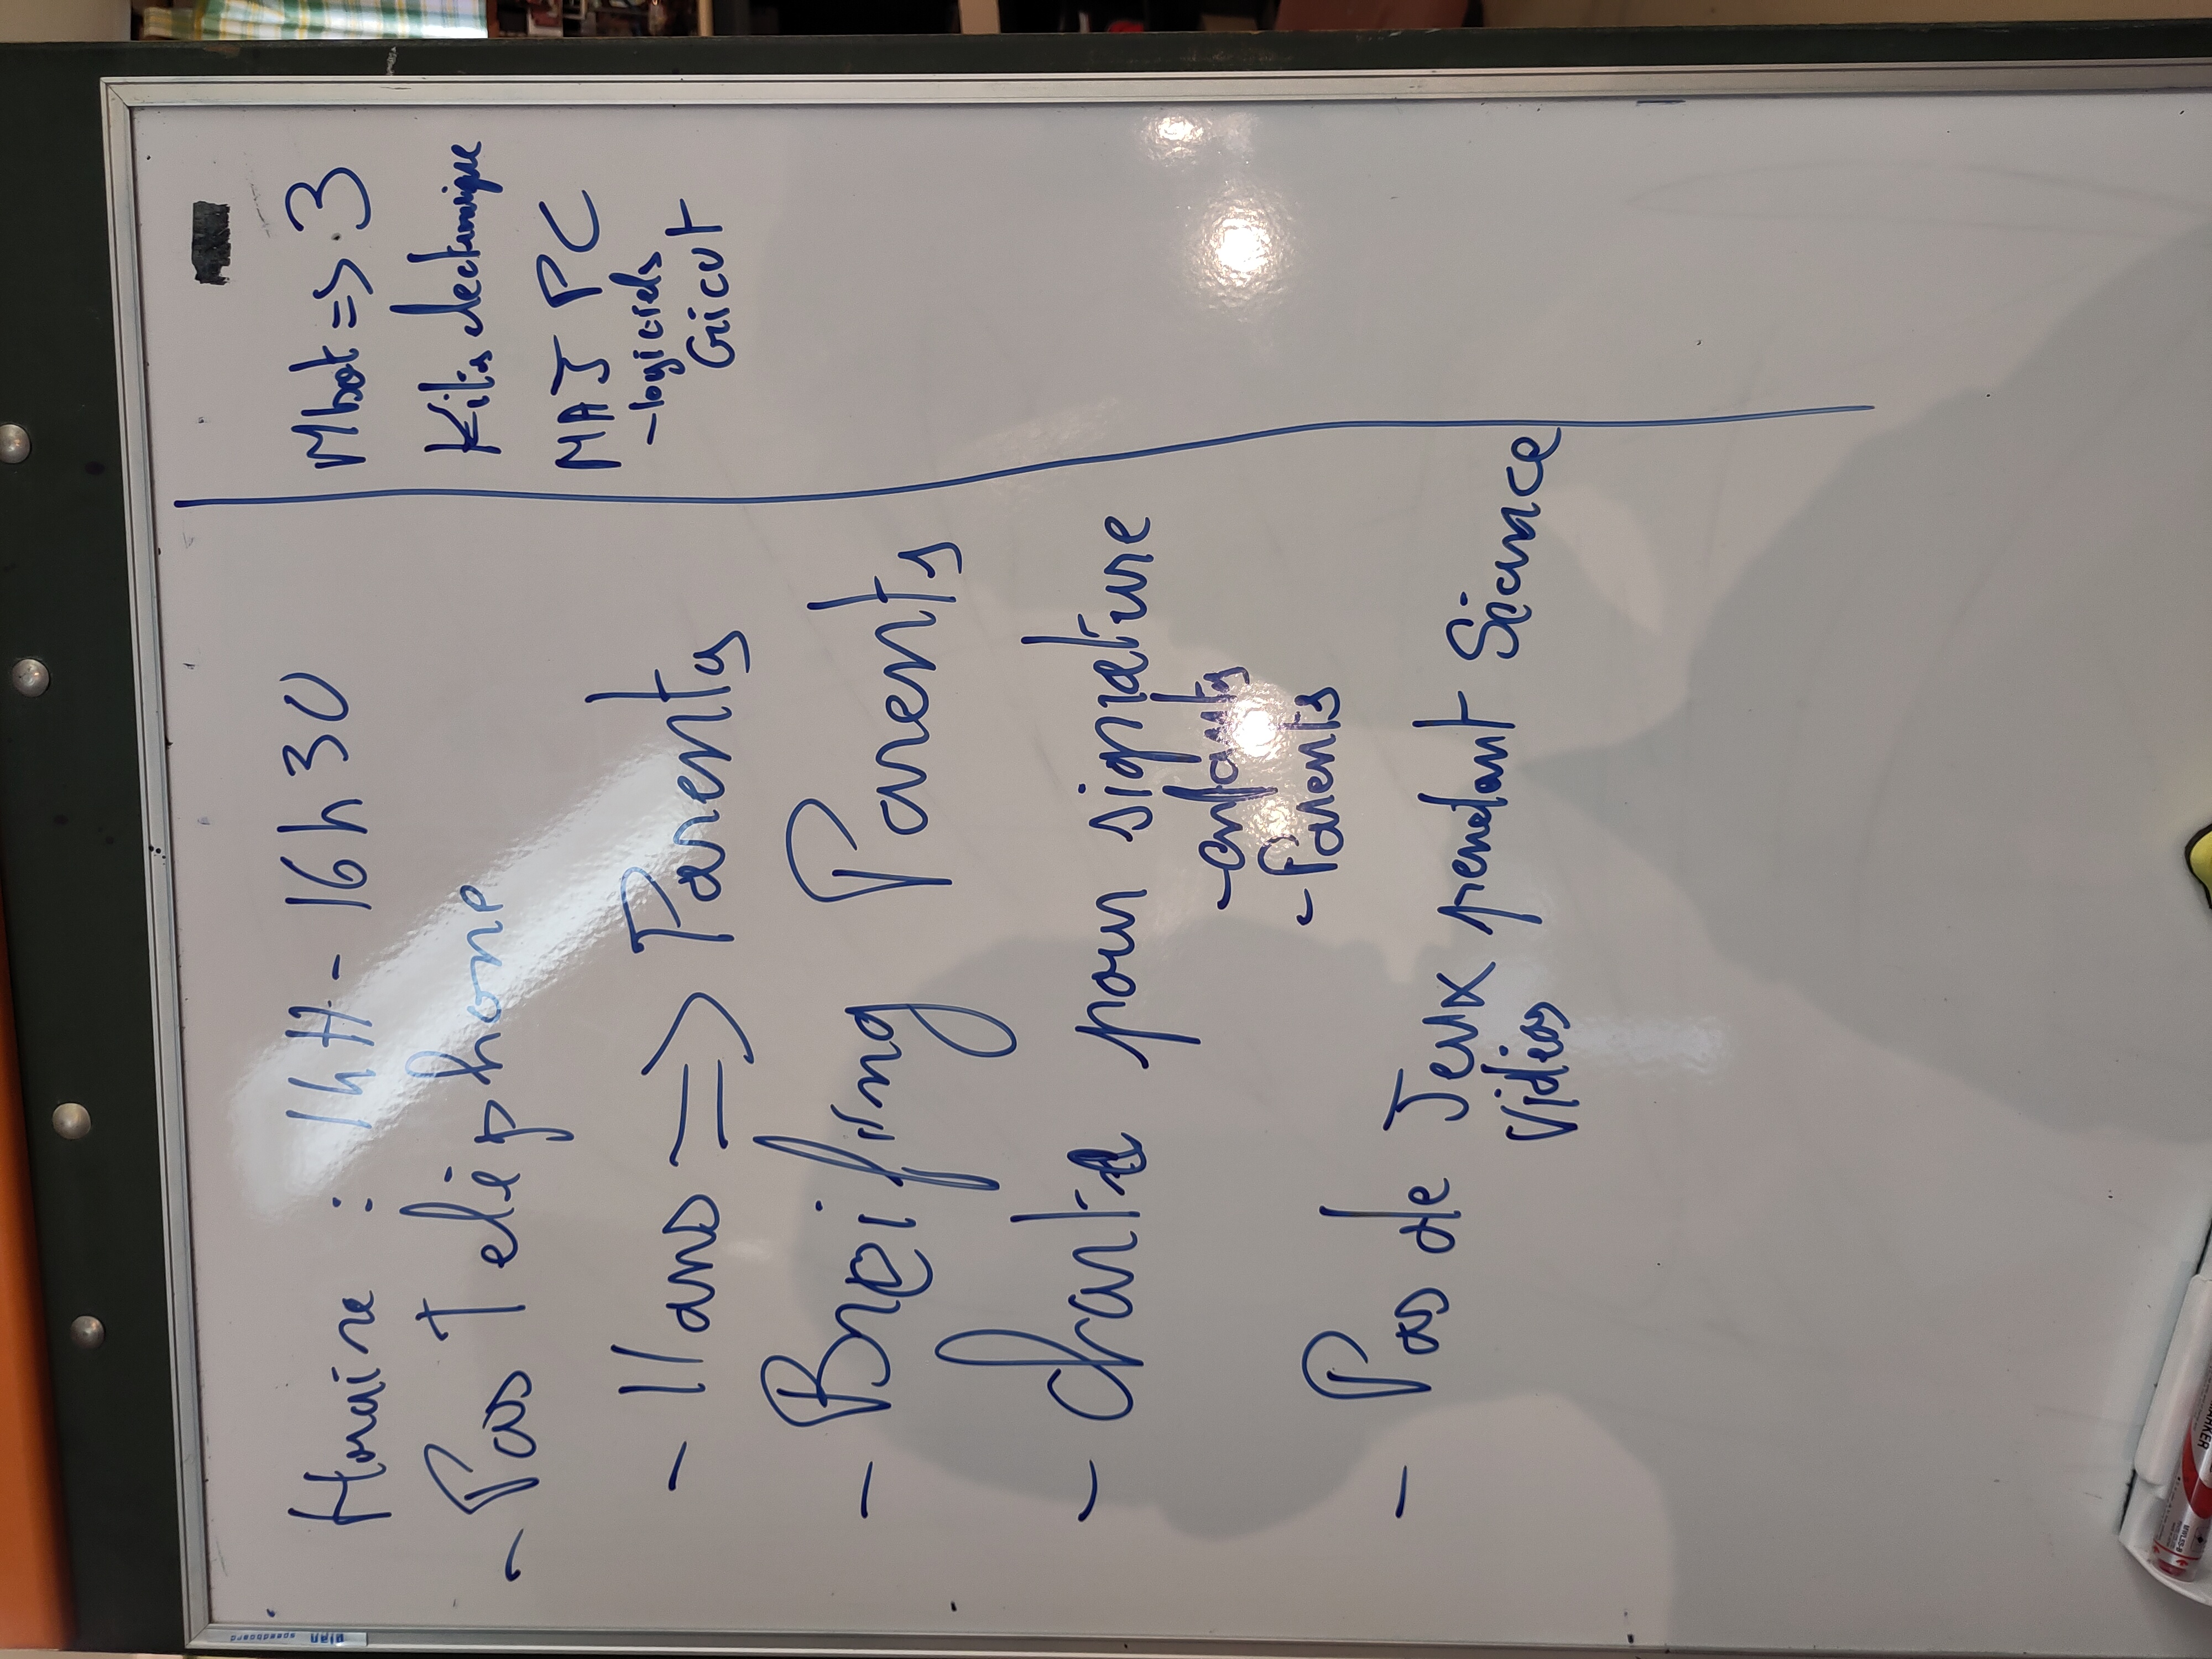 Horaire : 14H - 16h30
- Pas Téléphone
- 11 ans => Parents
- Breifing Parents
- charte pour signature
- enfants
- Parents
- Pas de Jeux pendant Séance
Vidéos
Mbot => 3
Kits électronique
MAJ PC
- logiciels
Gicut
MARKER